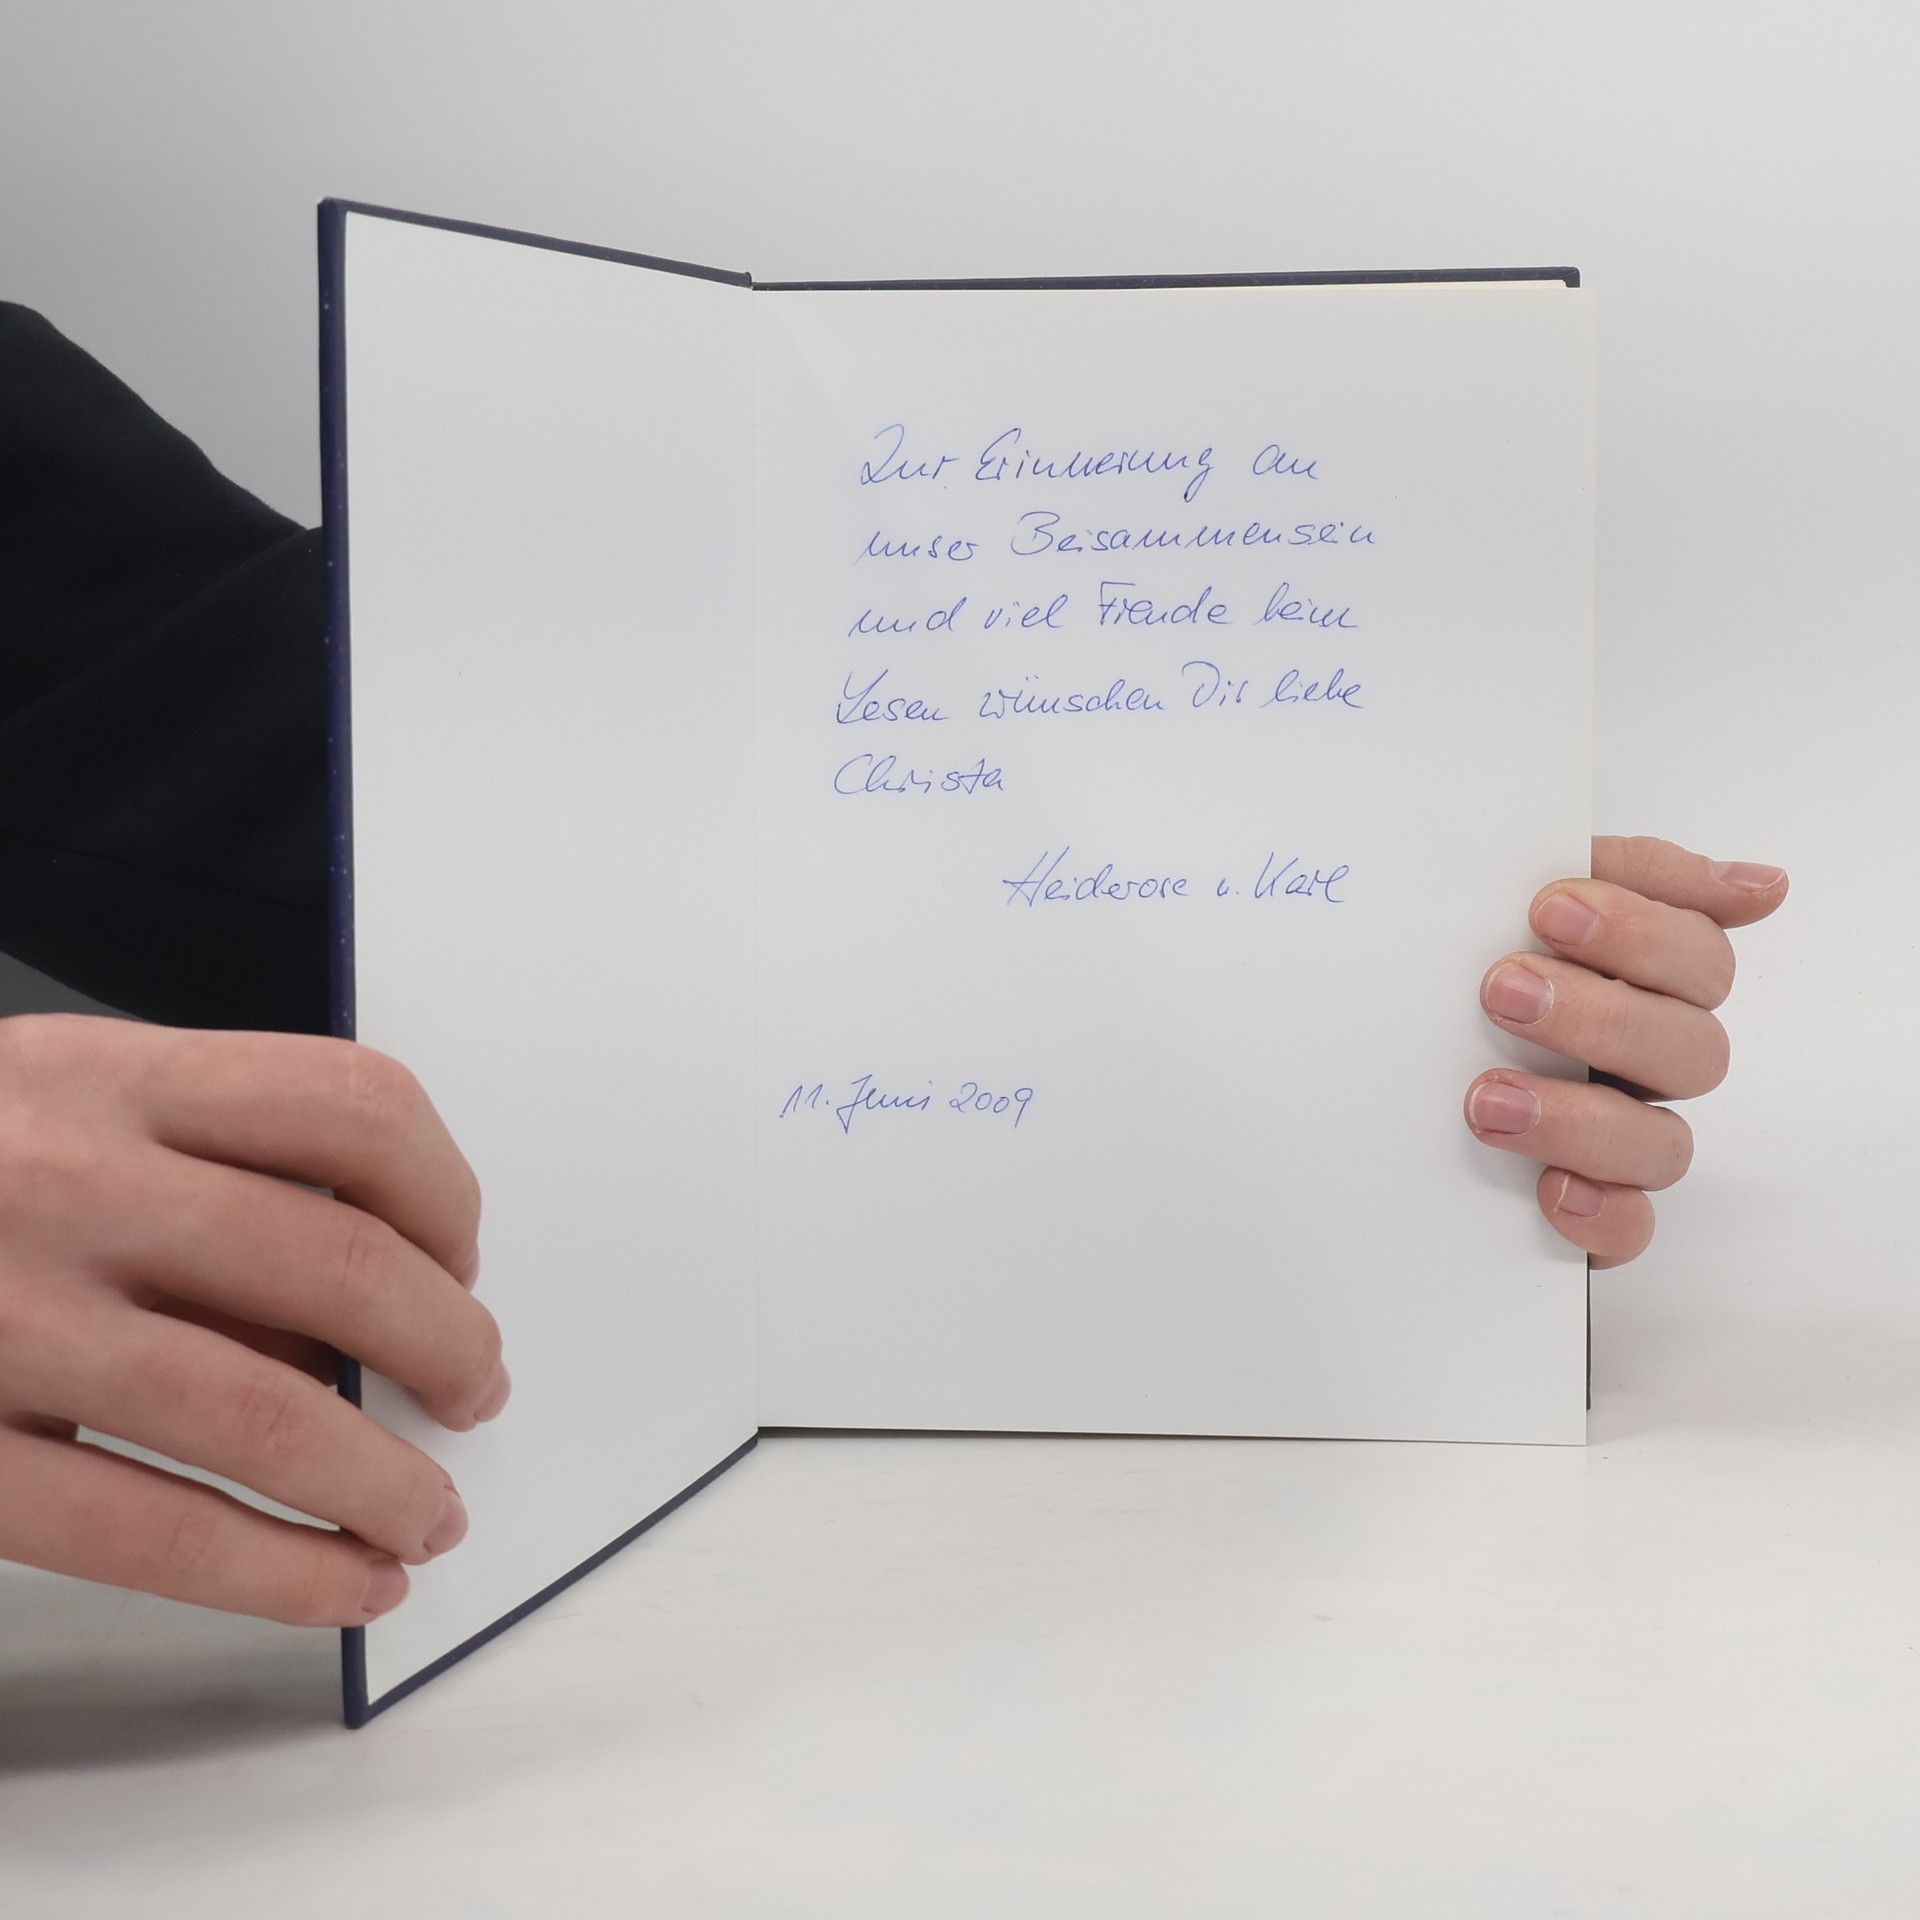 Zur Erinnerung an
unser Beisammensein
und viel Freude beim
Lesen wünschen Dir liebe
Christa
Heiderose u. Karl
11. Juni 2009